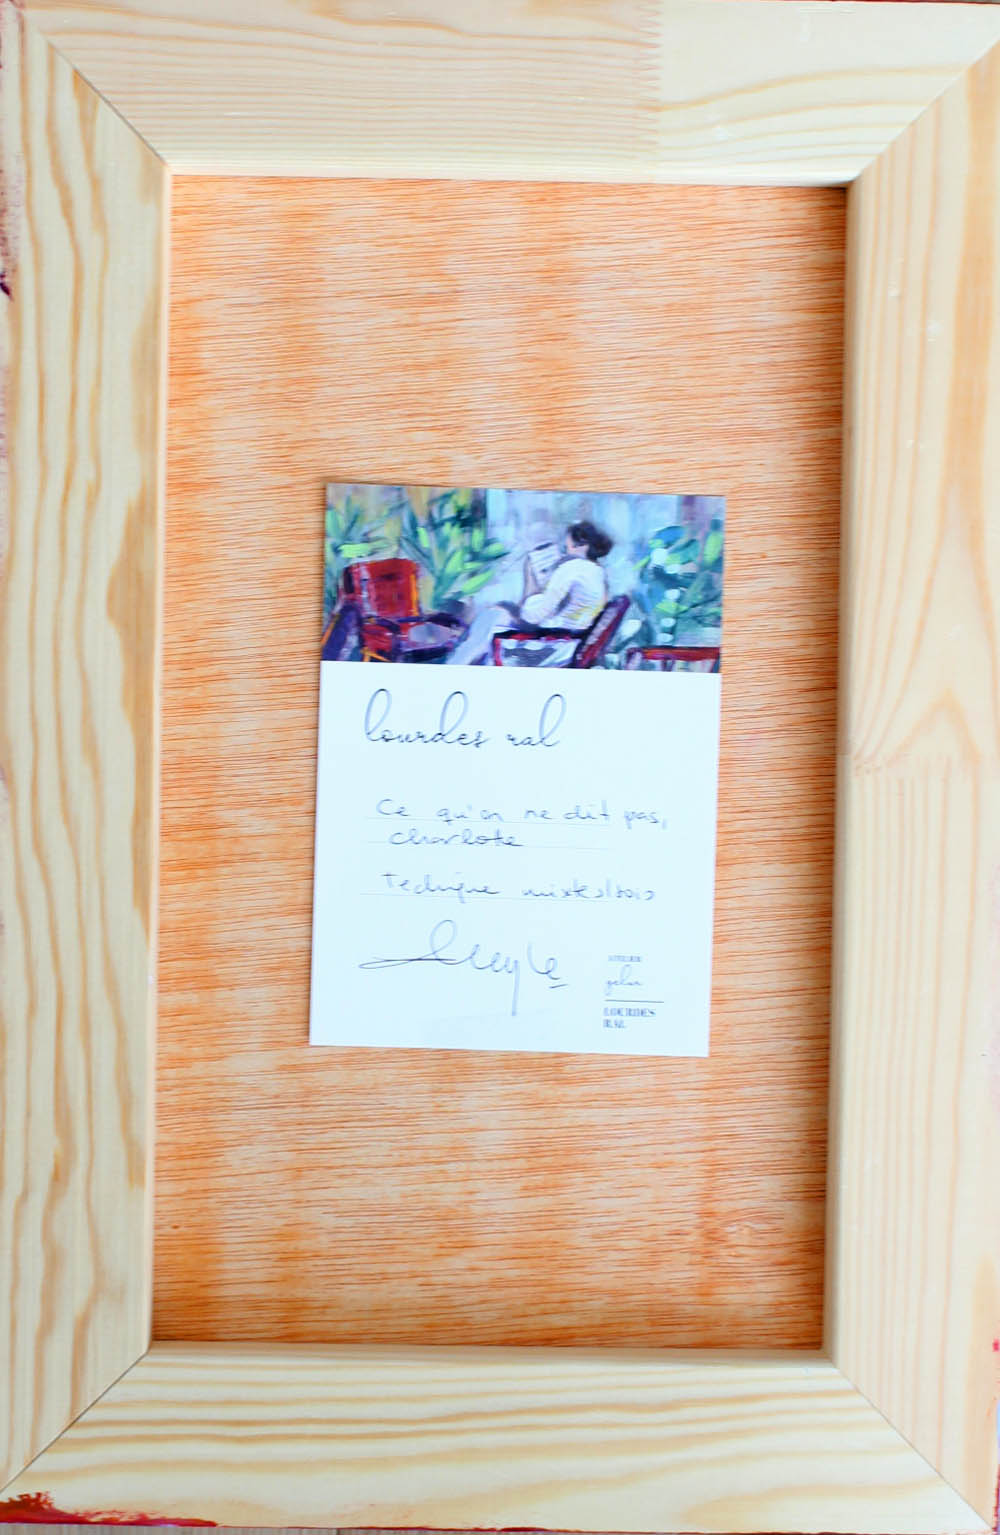 lourdes ral
Ce qu'on ne dit pas,
charlotte
Technique mixte/bois
ATELIER
LOURDES
RAL